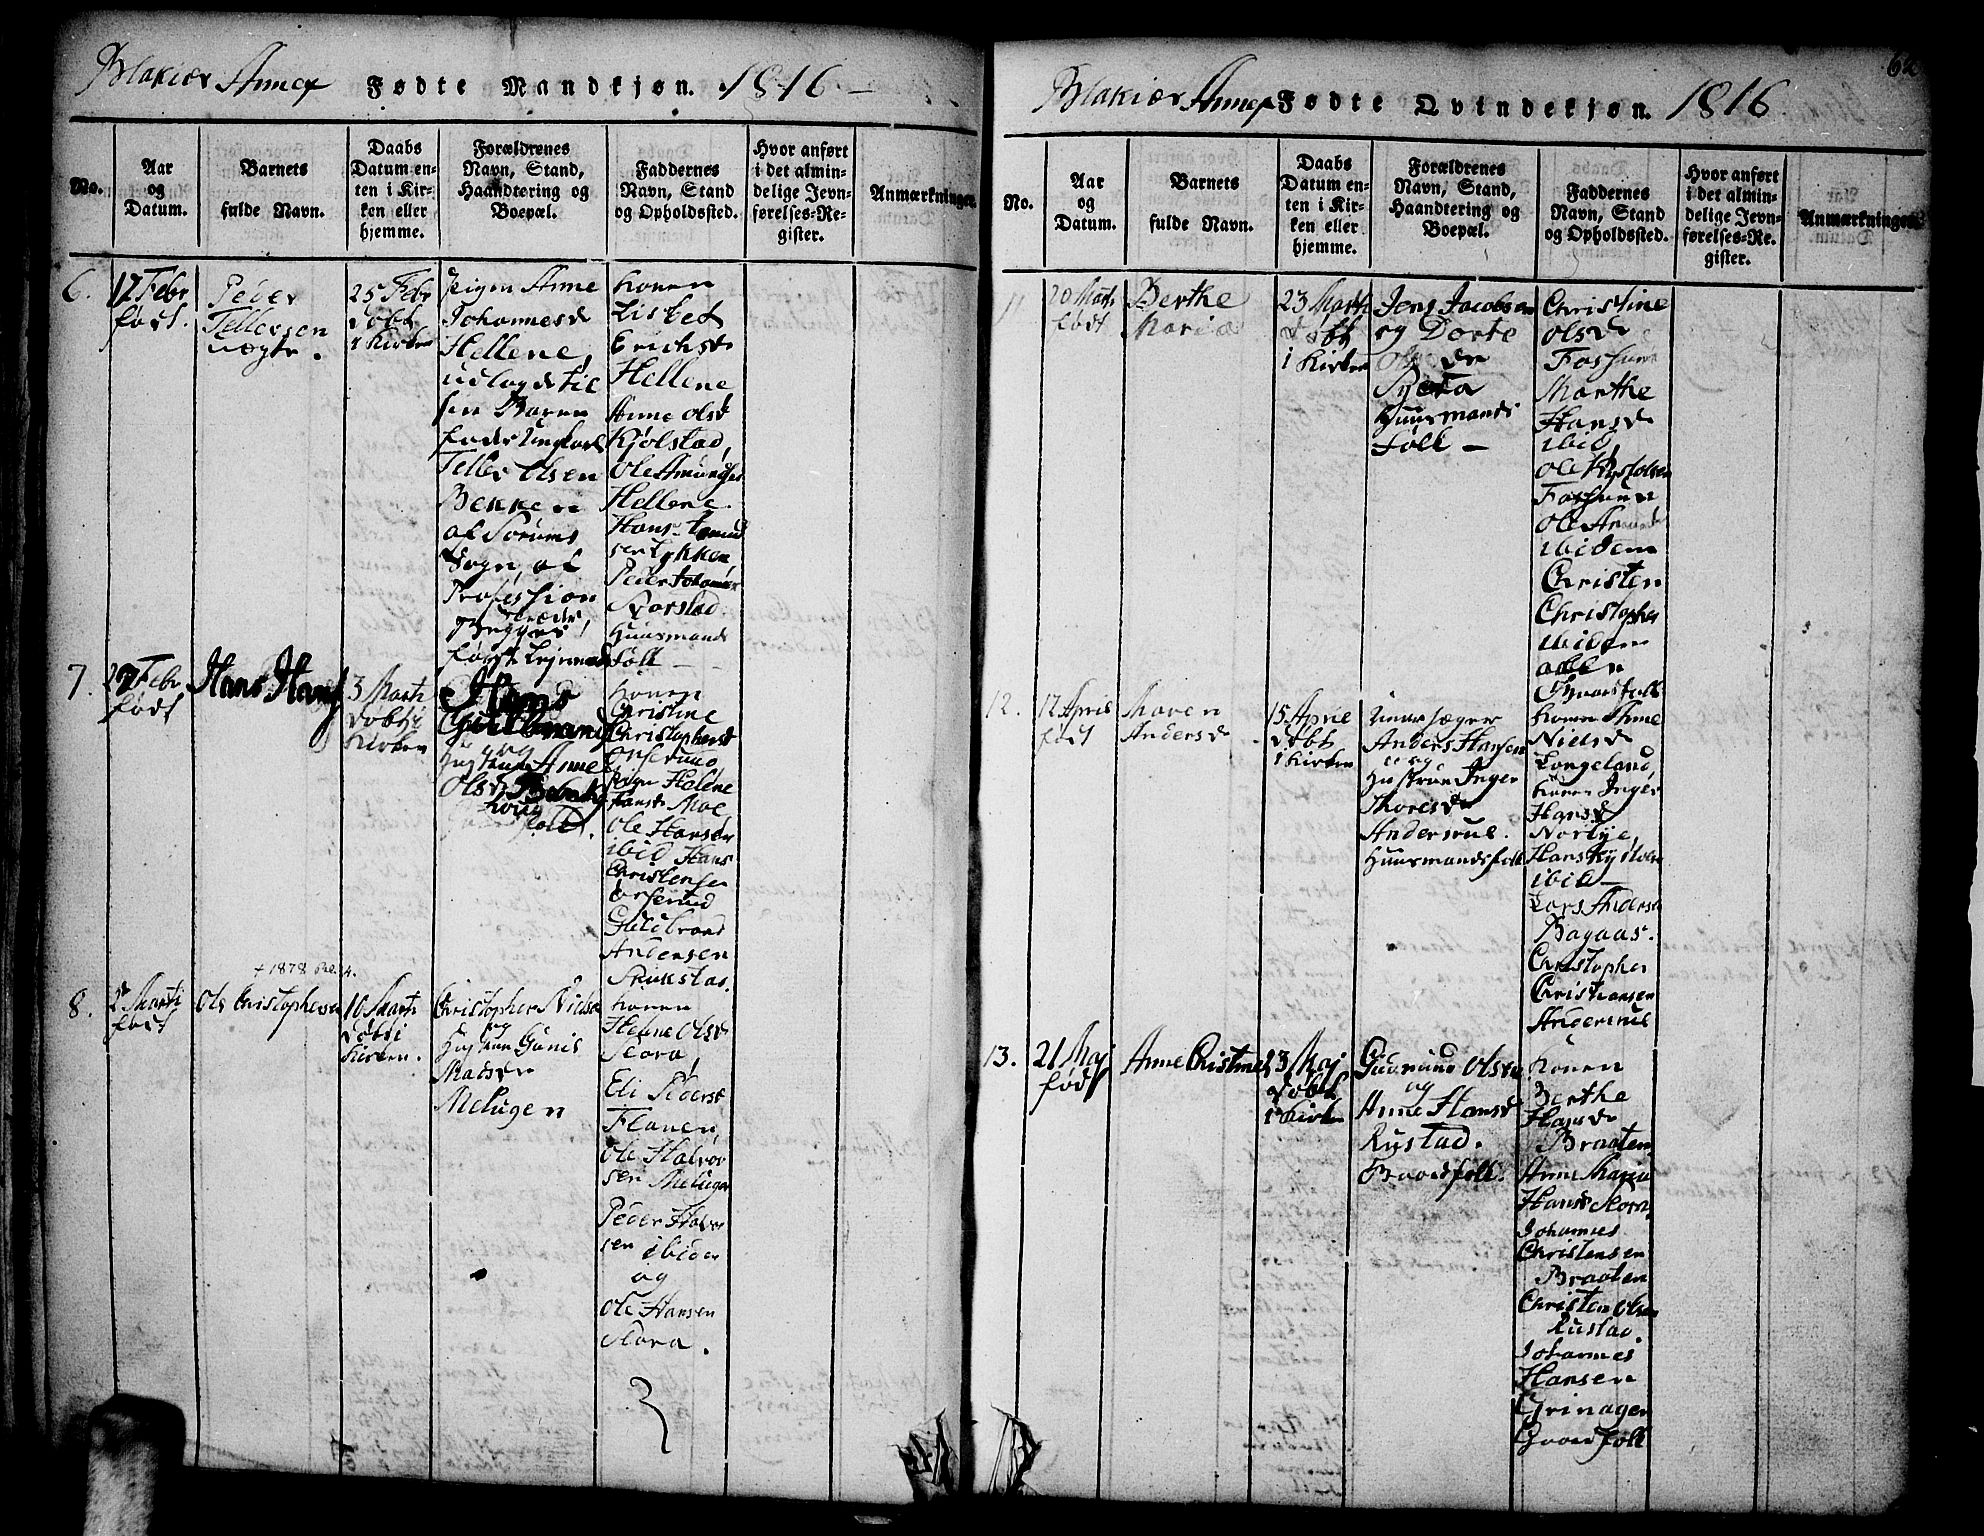 Blakier Annex Fødte Mandkjøn. 1816
No.
Aar
og
Datum.
Barnets
fulde Navn.
Daabs
Datum en-
ten i Kir-
ken eller
hjemme.
Forældrenes
Navn, Stand,
Haandtering og
Boepæl.
Faddernes
Navn, Stand
og Opholdssted.
Hvor anført
i det almin-
delige Jevn-
førelses-Re-
gister.
Anmærkninger.
6.
17 Febr
født.
Peder
Tellefsen
uægte.
25 Febr
døbt
i Kirken
Pigen Anne
Johannesd
Hellene,
udlagde til
sin Barne
fader Ungkarl
Tellev Olsen
Bekken
af Sørums
Sogn, af
Profession
Skræder,
begges
første Lejermaal
Konen
Lisbet
Erichsd
Hellene
Anne Olsd
Kjølstad,
Ole Amundsen
Hellene.
Hans Amund
sen Lykken
Peder Johannes
Huusmands
folk
7.
Febr
født
Hans Hans
3 Marti
døbt i
Kirken
Hans
Guldbrands
og
Hustrue Anne
Olsd
folk.
Konen
Christine
Christophersd
Pigen Helene
Hansd Moe
Ole Hansen
ibid Hans
Christensen
Guldbrand
Andersen
† 1878
8.
2 Marti
født
Ole Christophersen
10 Marti
døbt i
Kirken.
Christopher Nielsen
og
Hustrue Gunil
Madsd
Melugen
Konen
Helene Olsd
Slora,
Eli Pedersd
Flanen,
Ole Halvor
sen Melugen
Peder Halvor
sen ibiden
og
Ole Hansen
Slora.
62
Blakier Annex Fødte Qvindekjøn. 1816
No.
Aar
og
Datum.
Barnets
fulde Navn.
Daabs
Datum en-
ten i Kir-
ken eller
hjemme.
Forældrenes
Navn, Stand,
Haandtering og
Boepæl.
Faddernes
Navn, Stand
og Opholdssted.
Hvor anført
i det almin-
delige Jevn-
førelses-Re-
gister.
Anmærkninger.
11
20 Marti
født
Berthe
Maria
23 Marti
døbt
i Kirken
Jens Jacobsen
og Dorte
Huusmands
folk
Christine
Olsd
Fossum
Marthe
Hansd
ibid,
Ole Kystolsen
Fossum
Ole
ibidem
Christen
Christopher
ibidem
alle
Gaardfolk
12.
12 April
født
Maren
Andersd
15 April
døbt
i Kirken
Anders Hansen
og
Hustrue Inger
Thoresd
Andersrud.
Huusmandsfolk
Konen Anne
Nielsd
Langeland,
Konen Inger
Hansd
Norbye,
Hans Kystolsen
ibid
Lars Anders
Bagaas.
Christopher
Christiansen
Andersrud
13.
21 Maj
født
Anne Christine
23 Maj
døbt
i Kirken
Gudmund Olsen
og
Anne Hansd
Rustad.
Gaardfolk.
Konen
Berthe
Hansd
Braaten
Anne Maria
Hansd Slora
Johannes
Christensen
Braaten
Christen Olsen
Rustad.
Johannes
Hansen
Grinager
Gaardfolk